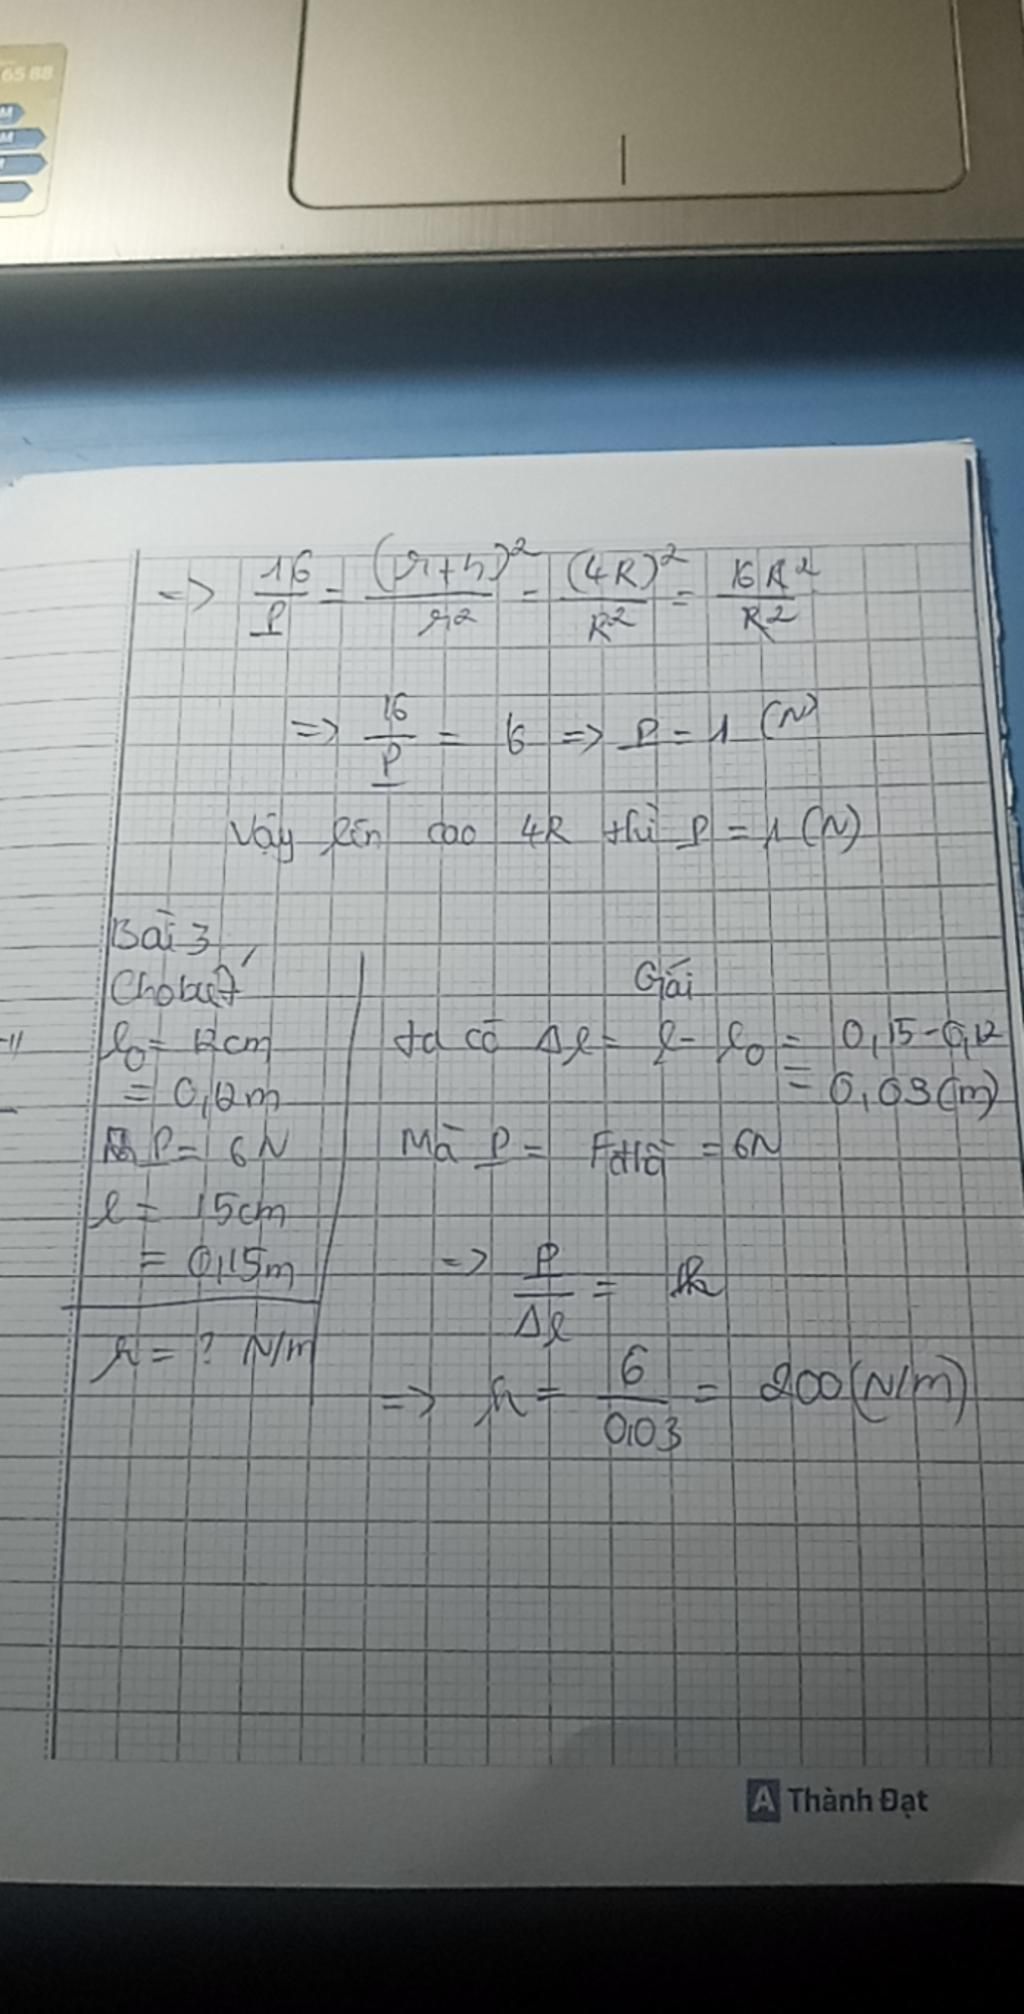 65 88
M
M
=> 16/P = (r+h)²/r² = (4R)²/R² = 16R²/R²
=> 16/P = 16 => P = 1 (N)
Vậy lên cao 4R thì P = 1 (N)
Bài 3
Cho biết
l₀ = 12cm
= 0,12m
P = 6N
l = 15cm
= 0,15m
k = ? N/m
Gải
ta có Δl = l - l₀ = 0,15-0,12
= 0,03(m)
Mà P = Fđhồi = 6N
=> P/Δl = k
=> k = 6/0,03 = 200(N/m)
A Thành Đạt